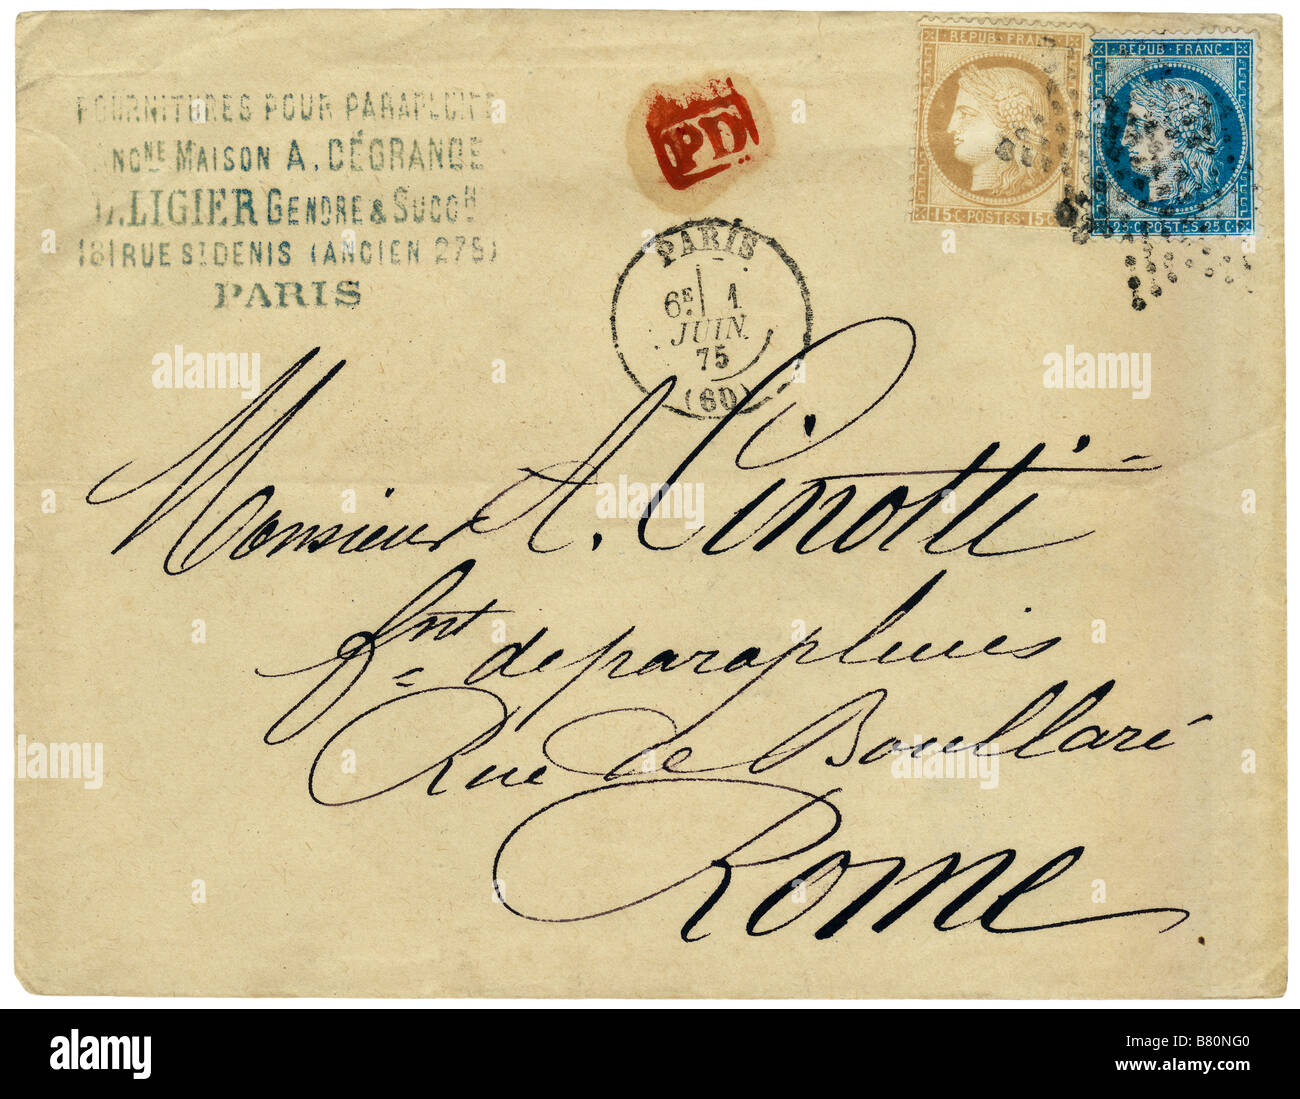 FOURNITURES POUR PARAPLUIES
ANCNE MAISON A. DÉGRANGE
LIGIER GENDRE & SUCCR
181 RUE ST DENIS (ANCIEN 278)
PARIS
PD
REPUB. FRANC.
15 C. POSTES. 15 C.
REPUB. FRANC.
25 C. POSTES. 25 C.
PARIS
6E 1
JUIN.
75
(60)
Monsieur A. Cinotti
fcnt de parapluies
Rue de Boullari
Rome
alamy
Image ID: B80NG0
www.alamy.com